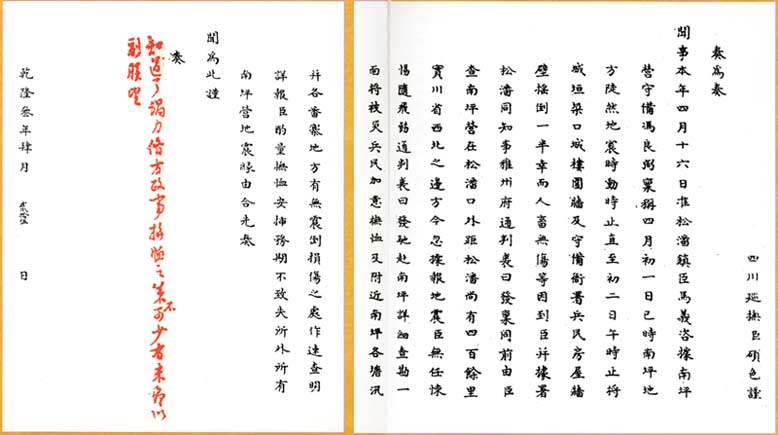 四川巡撫臣碩色謹
奏為奏
聞事本年四月十六日准松潘鎮臣馬義咨據南坪
營守備馮良弼稟稱四月初一日巳時南坪地
方陡然地震時動時止直至初二日午時止將
城垣垛口城樓圍牆及守備衙署兵民房屋牆
壁搖倒一半幸而人畜無傷等因到臣并據署
松潘同知事雅州府通判裘曰發稟同前由臣
查南坪營在松潘口外距松潘尚有四百餘里
實川省西北之邊方今忽據報地震臣無任悚
惕隨飛飭通判裘曰發馳赴南坪詳細查勘一
面將被災兵民加意撫恤及附近南坪各塘汛
并各番寨地方有無震倒損傷之處作速查明
詳報臣酌量撫恤安插務期不致失所外所有
南坪營地震緣由合先奏
聞為此謹
奏
知道了竭力脩方政拯恤之策不可少者
副朕望
乾隆叁年肆月日